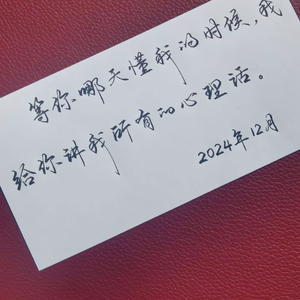 等你哪天懂我的时候,我
给你讲我所有的心理话。
2024年12月